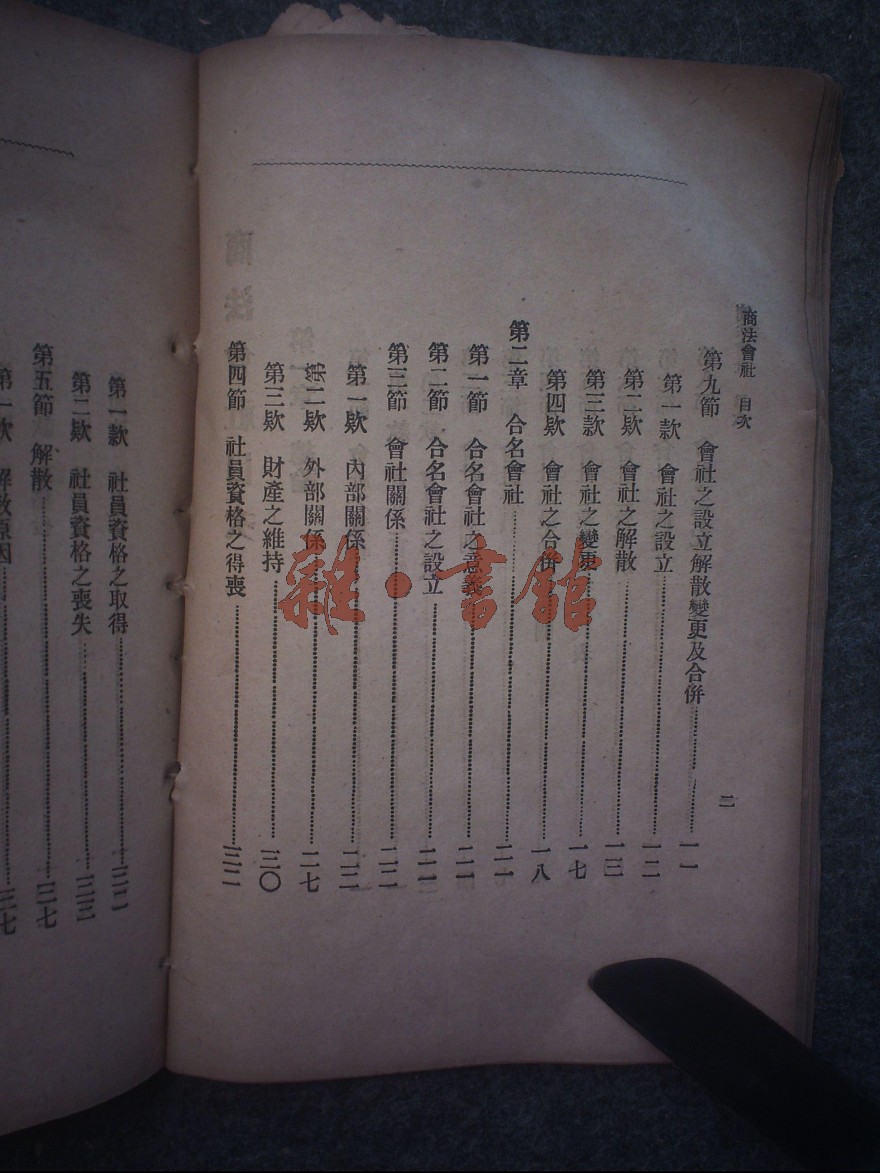 商法會社 目次
二
第九節 會社之設立解散變更及合併……一一
第一款 會社之設立……一二
第二欵 會社之解散……一三
第三款 會社之變更……一七
第四欵 會社之合併……一八
第二章 合名會社……二一
第一節 合名會社之意義……二一
第二節 合名會社之設立……二一
第三節 會社關係……二二
第一欵 內部關係……二二
第二欵 外部關係……二七
第三欵 財產之維持……三〇
第四節 社員資格之得喪……三二
第一款 社員資格之取得……三二
第二欵 社員資格之喪失……三三
第五節 解散……三七
第一欵 解散原因……三七
雜·書館